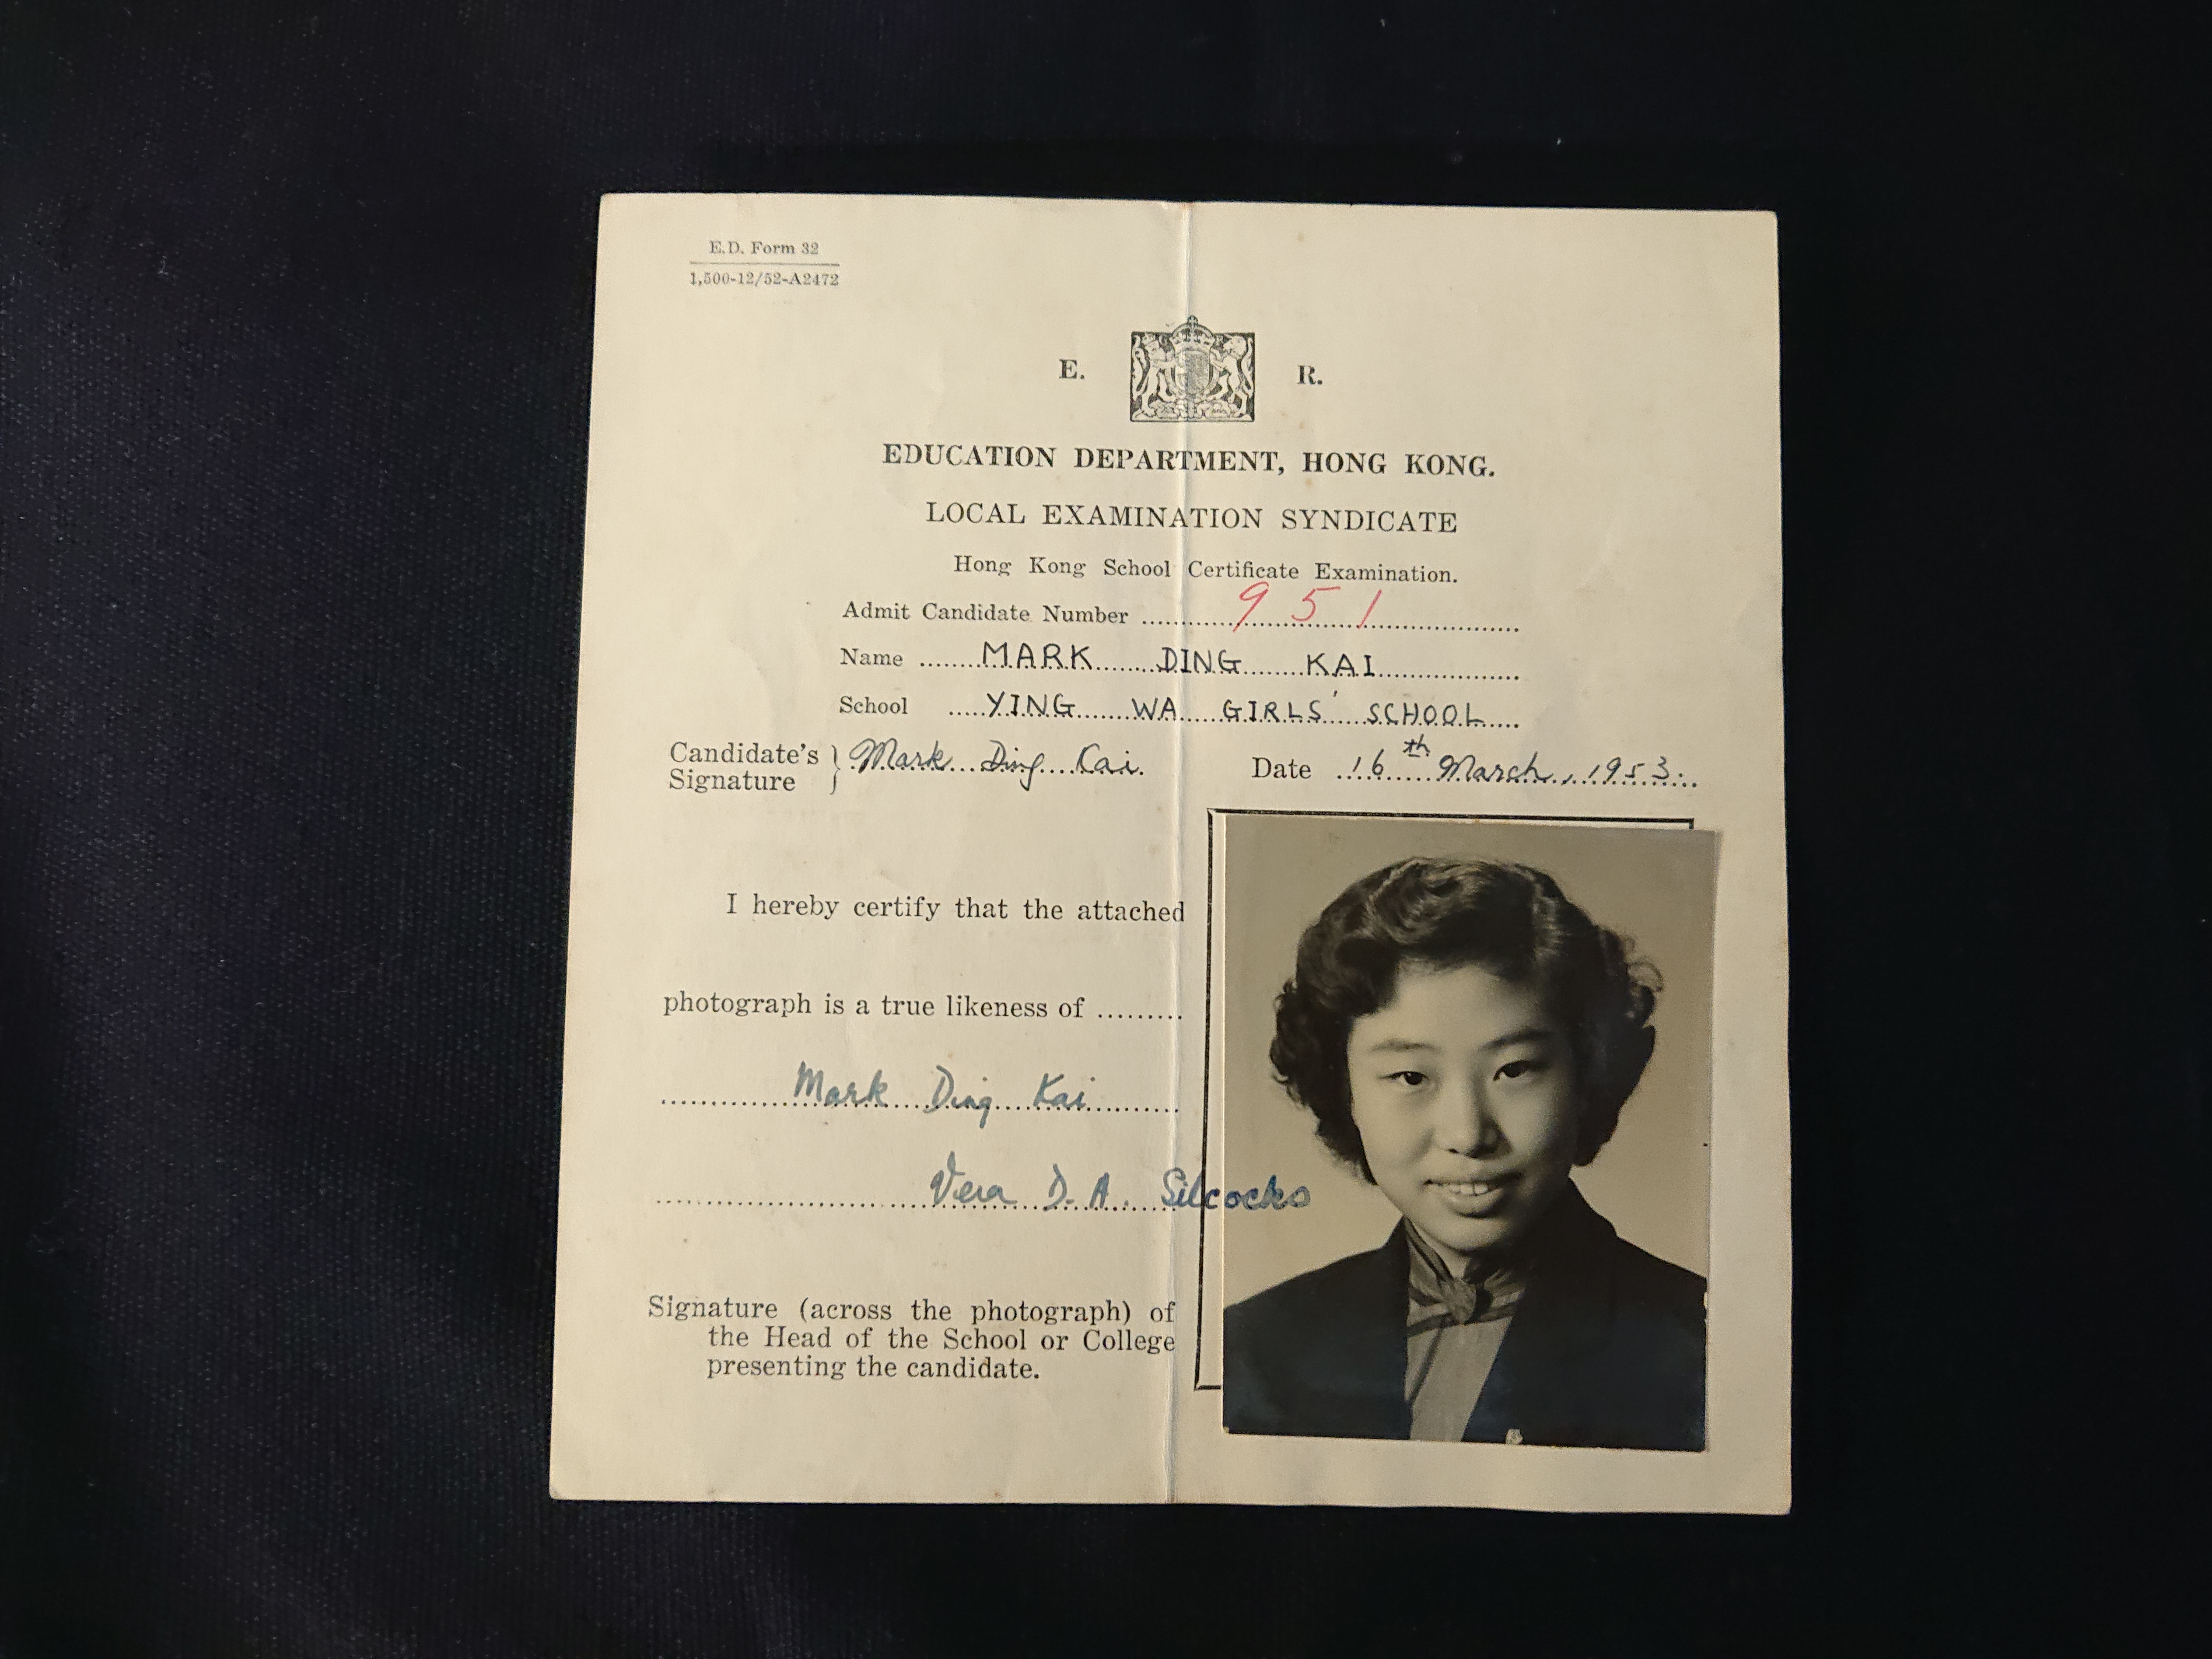 E.D. Form 32
1,500-12/52-A2472
E. R.
EDUCATION DEPARTMENT, HONG KONG.
LOCAL EXAMINATION SYNDICATE
Hong Kong School Certificate Examination.
Admit Candidate Number 951
Name MARK DING KAI
School YING WA GIRLS' SCHOOL
Candidate's Signature } Mark Ding Kai. Date 16th March, 1953.
I hereby certify that the attached
photograph is a true likeness of
Mark Ding Kai
Vera D. A. Silcocks
Signature (across the photograph) of
the Head of the School or College
presenting the candidate.